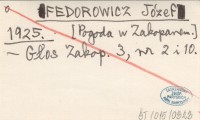 FEDOROWICZ Józef
1925. [Pogoda w Zakopanem.]
– Głos Zakop. 3, nr 2 i 10.
BT/015/0323